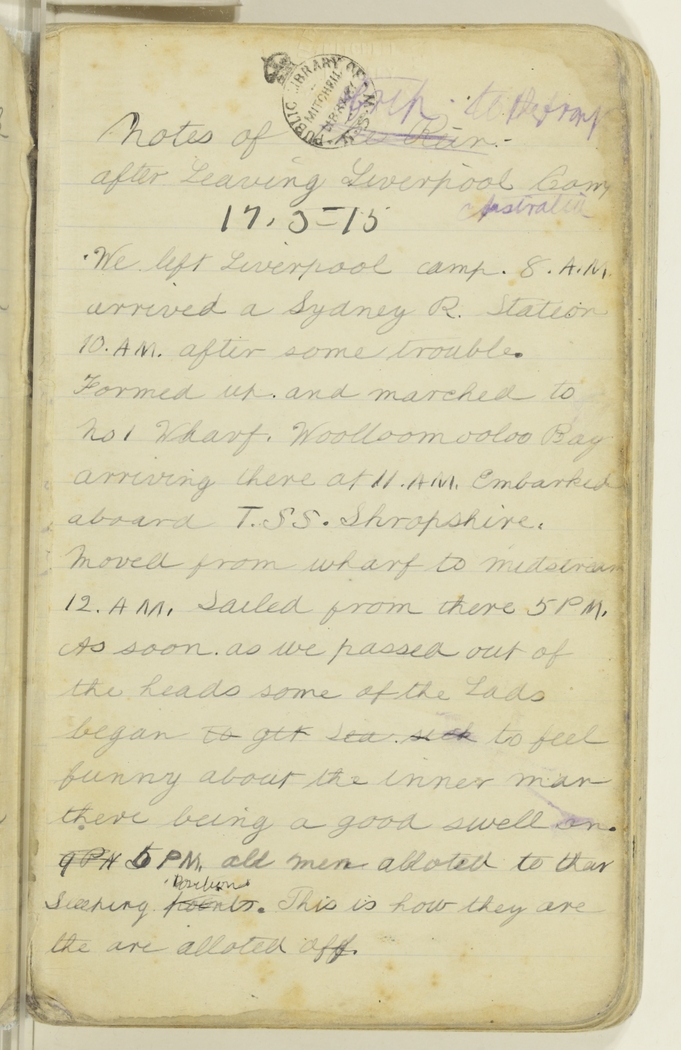 PUBLIC LIBRARY OF N.S.W.
MITCHELL
LIBRARY
Notes of
after Leaving Liverpool Camp
Australia
17.5-15
We left Liverpool camp. 8. A.M.
arrived a Sydney R. Station
10. A.M. after some trouble.
Formed up. and marched to
No 1 Wharf. Woolloomooloo Bay
arriving there at 11. A.M. Embarked
aboard T.S.S. Shropshire.
Moved from wharf to midstream
12. A M. Sailed from there 5 P M.
As soon. as we passed out of
the heads some of the Lads
began to get sea sick to feel
funny about the inner man
there being a good swell on.
9 PM 6 PM. all men alloted to thar
Position
Sleeping points. This is how they are
the are alloted off.